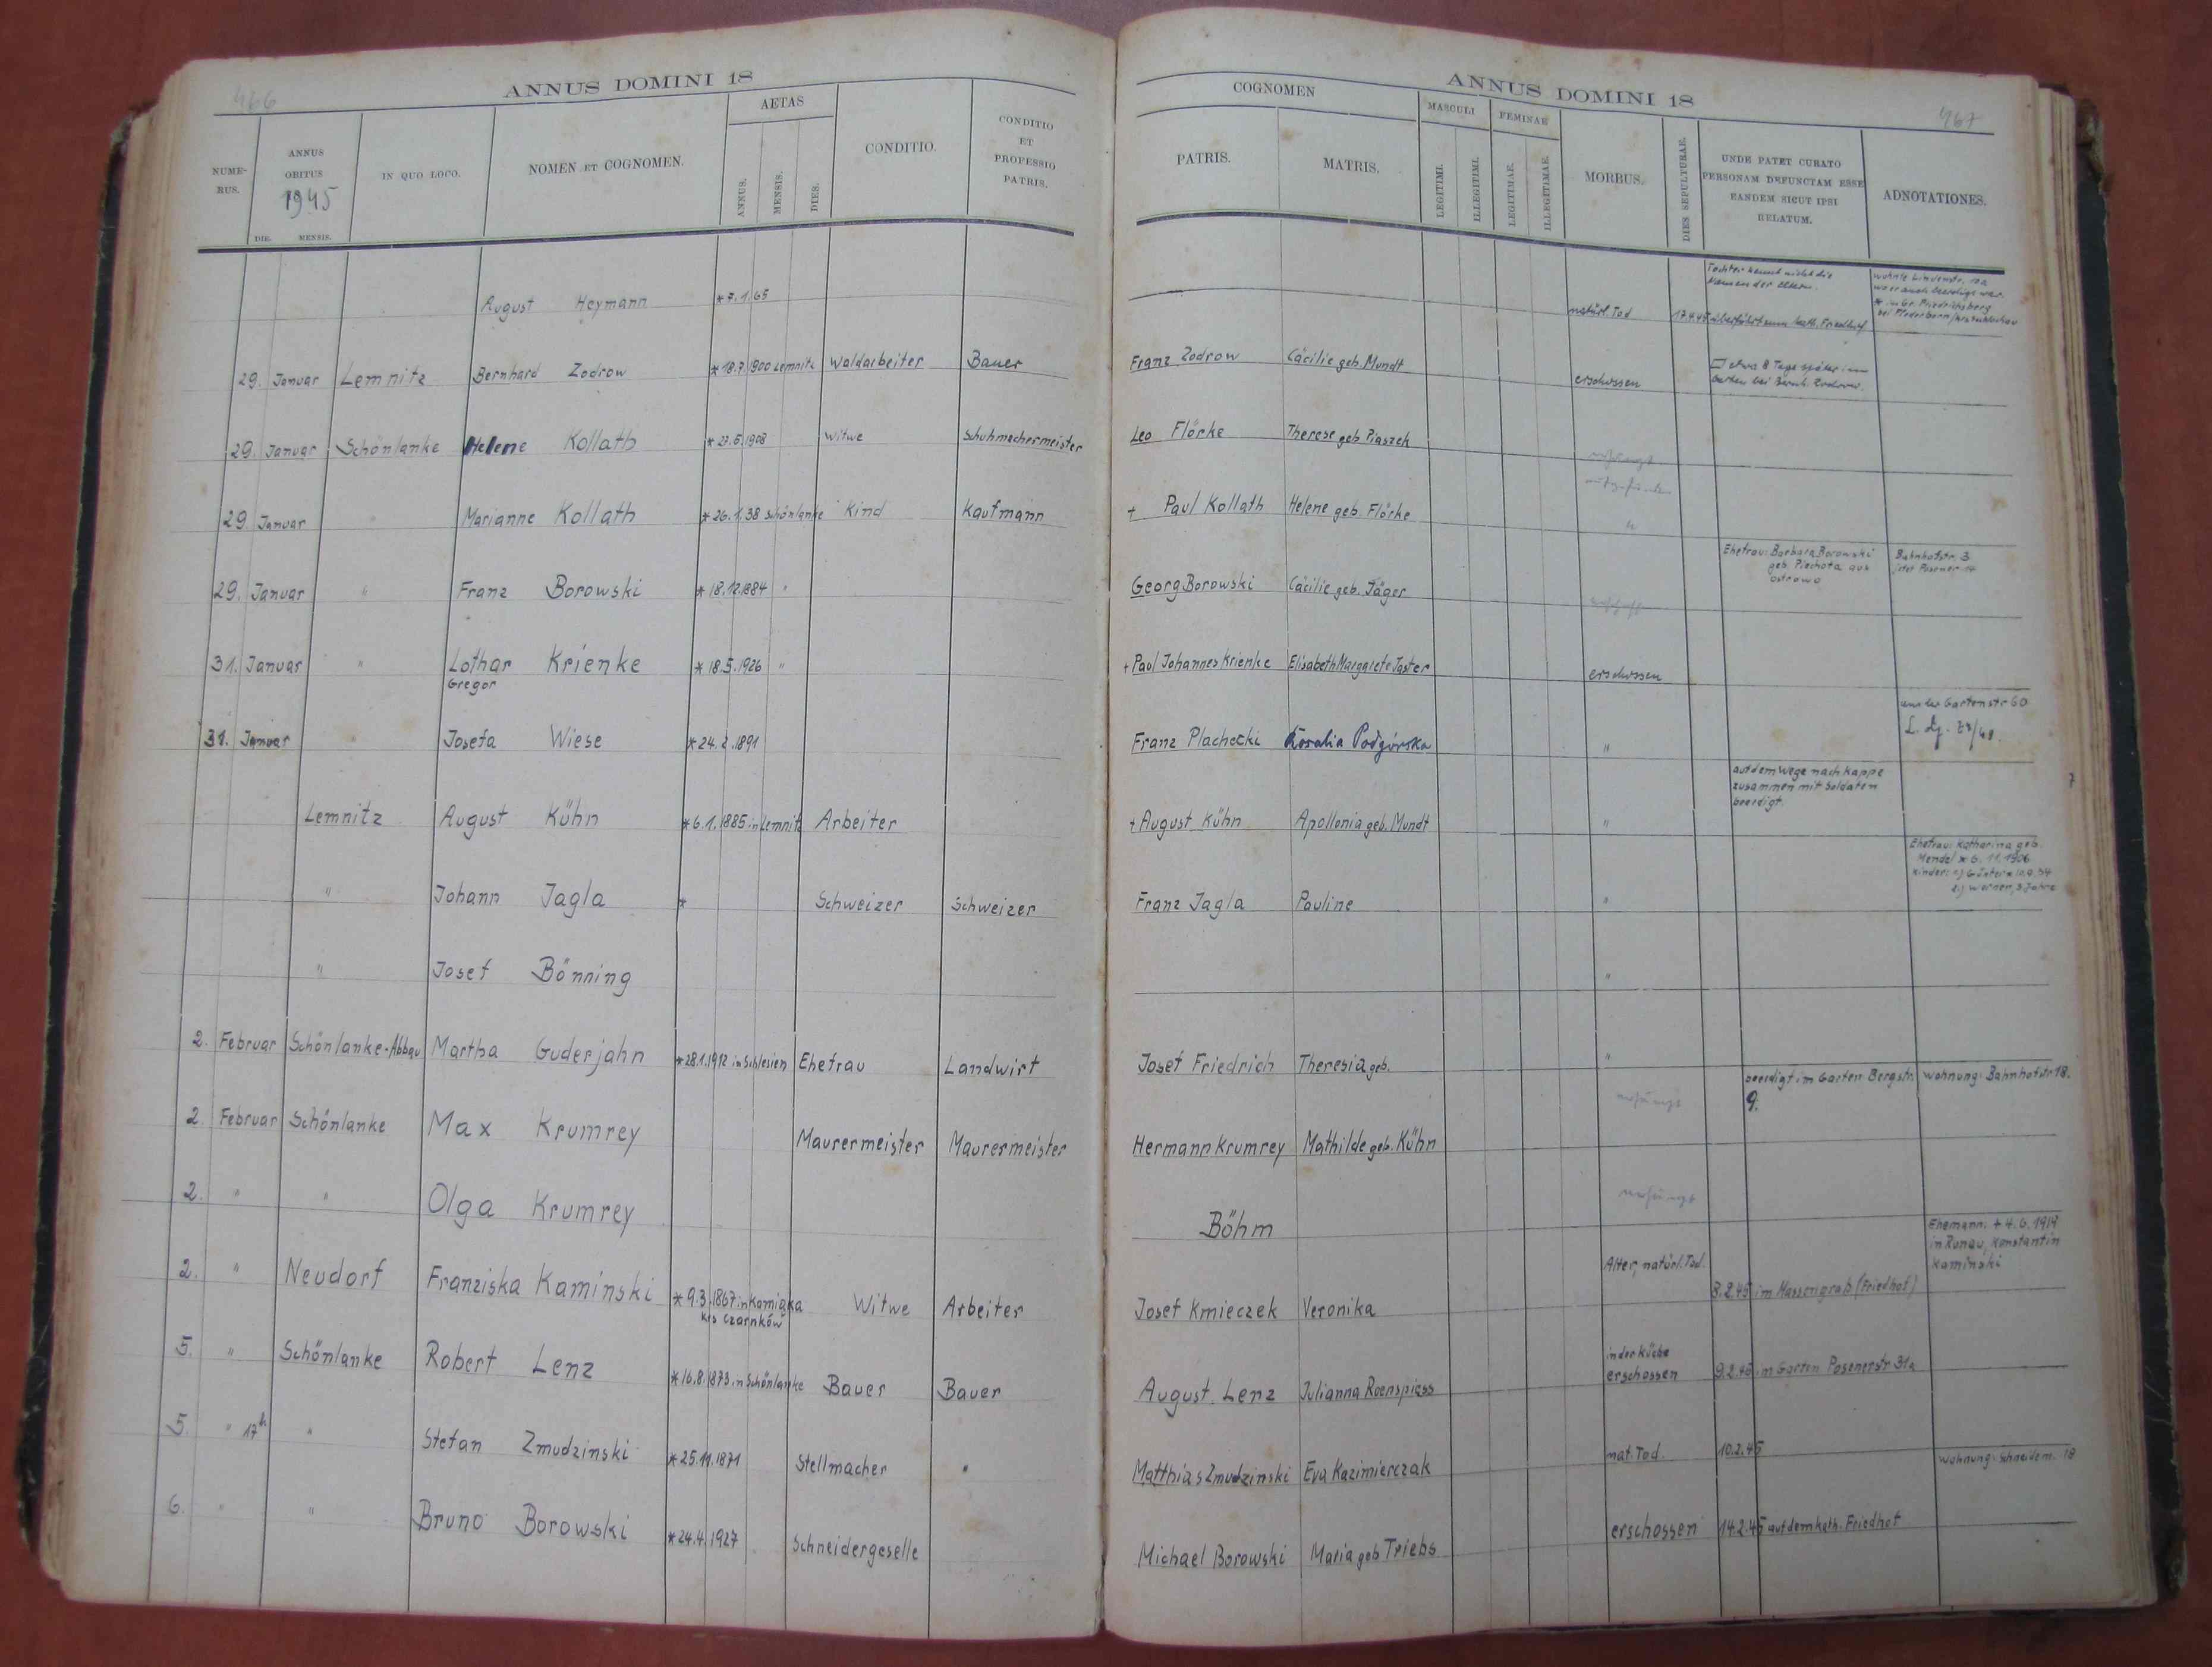 466
ANNUS DOMINI 18
NUME-
RUS.
ANNUS
OBITUS
1945
DIE. MENSIS.
IN QUO LOCO.
NOMEN ET COGNOMEN.
AETAS
ANNUS.
MENSIS.
DIES.
CONDITIO.
CONDITIO
ET
PROFESSIO
PATRIS.
August Heymann *7.1.65
29. Januar Lemnitz Bernhard Zodrow *18.7.1900 Lemnitz Waldarbeiter Bauer
29. Januar Schönlanke Helene Kollath *23.6.1908 Witwe Schuhmachermeister
29 Januar " Marianne Kollath *26.1.38 Schönlanke Kind Kaufmann
29. Januar " Franz Borowski *18.12.1884 "
31. Januar " Lothar Krienke *18.5.1926 "
Gregor
31. Januar " Josefa Wiese *24.2.1891
Lemnitz August Kühn *6.1.1885 in Lemnitz Arbeiter
" Johann Jagla * Schweizer Schweizer
" Josef Bönning
2. Februar Schönlanke-Abbau Martha Guderjahn *28.1.1912 in Schlesien Ehefrau Landwirt
2. Februar Schönlanke Max Krumrey Maurermeister Maurermeister
2. " " Olga Krumrey
2. " Neudorf Franziska Kaminski *9.3.1867 in Kamionka Witwe Arbeiter
Krs Czarnków
5. " Schönlanke Robert Lenz *16.8.1873 in Schönlanke Bauer Bauer
5. " 17h " Stefan Zmudzinski *25.11.1871 Stellmacher "
6. " " Bruno Borowski *24.4.1927 Schneidergeselle
467
ANNUS DOMINI 18
COGNOMEN
PATRIS.
MATRIS.
MASCULI
LEGITIMI.
ILLEGITIMI.
FEMINAE
LEGITIMAE.
ILLEGITIMAE.
MORBUS.
DIES SEPULTURAE.
UNDE PATET CURATO
PERSONAM DEFUNCTAM ESSE
EANDEM SICUT IPSI
RELATUM.
ADNOTATIONES.
Tochter kennt nicht die
Namen der Eltern.
wohnte Lindenstr. 10a
wo er auch beerdigt war.
* in Gr. Friedrichsberg
bei Flederborn
natürl. Tod 17.4.45 überführt zum kath. Friedhof
Franz Zodrow Cäcilie geb. Mundt erschossen
etwa 8 Tage später im
Garten bei Bernh. Zodrow.
Leo Flörke Therese geb Piaszek
+ Paul Kollath Helene geb. Flörke "
Ehefrau: Barbara Borowski
geb. Piechota aus
Ostrowo
Bahnhofstr. 3
Georg Borowski Cäcilie geb. Jäger
+ Paul Johannes Krienke Elisabeth Margarete Jaster erschossen
Gartenstr 60
Franz Plachecki Rosalia Podgórska "
auf dem Wege nach Kappe
zusammen mit Soldaten
beerdigt.
+ August Kühn Apollonia geb. Mundt "
Ehefrau: Katharina geb.
Mendel * 6.11.1906
Kinder: 1) Günter
2) Werner, 3 Jahre
Franz Jagla Pauline "
"
Josef Friedrich Theresia geb. "
beerdigt im Garten Bergstr.
9.
Wohnung: Bahnhofstr 18.
Hermann Krumrey Mathilde geb. Kühn
Böhm
Ehemann: + 4.6.1919
in Runau, Konstantin
Kaminski
Alter, natürl. Tod.
Josef Kmieczek Veronika 8.2.45 im Massengrab (Friedhof)
in der Küche
August Lenz Julianna Roenspiess erschossen 9.2.45 im Garten Posenerstr 31a
Matthias Zmudzinski Eva Kazimierczak nat. Tod. 10.2.45
Wohnung: Schneidem. 18
Michael Borowski Maria geb Triebs erschossen 14.2.45 auf dem kath. Friedhof